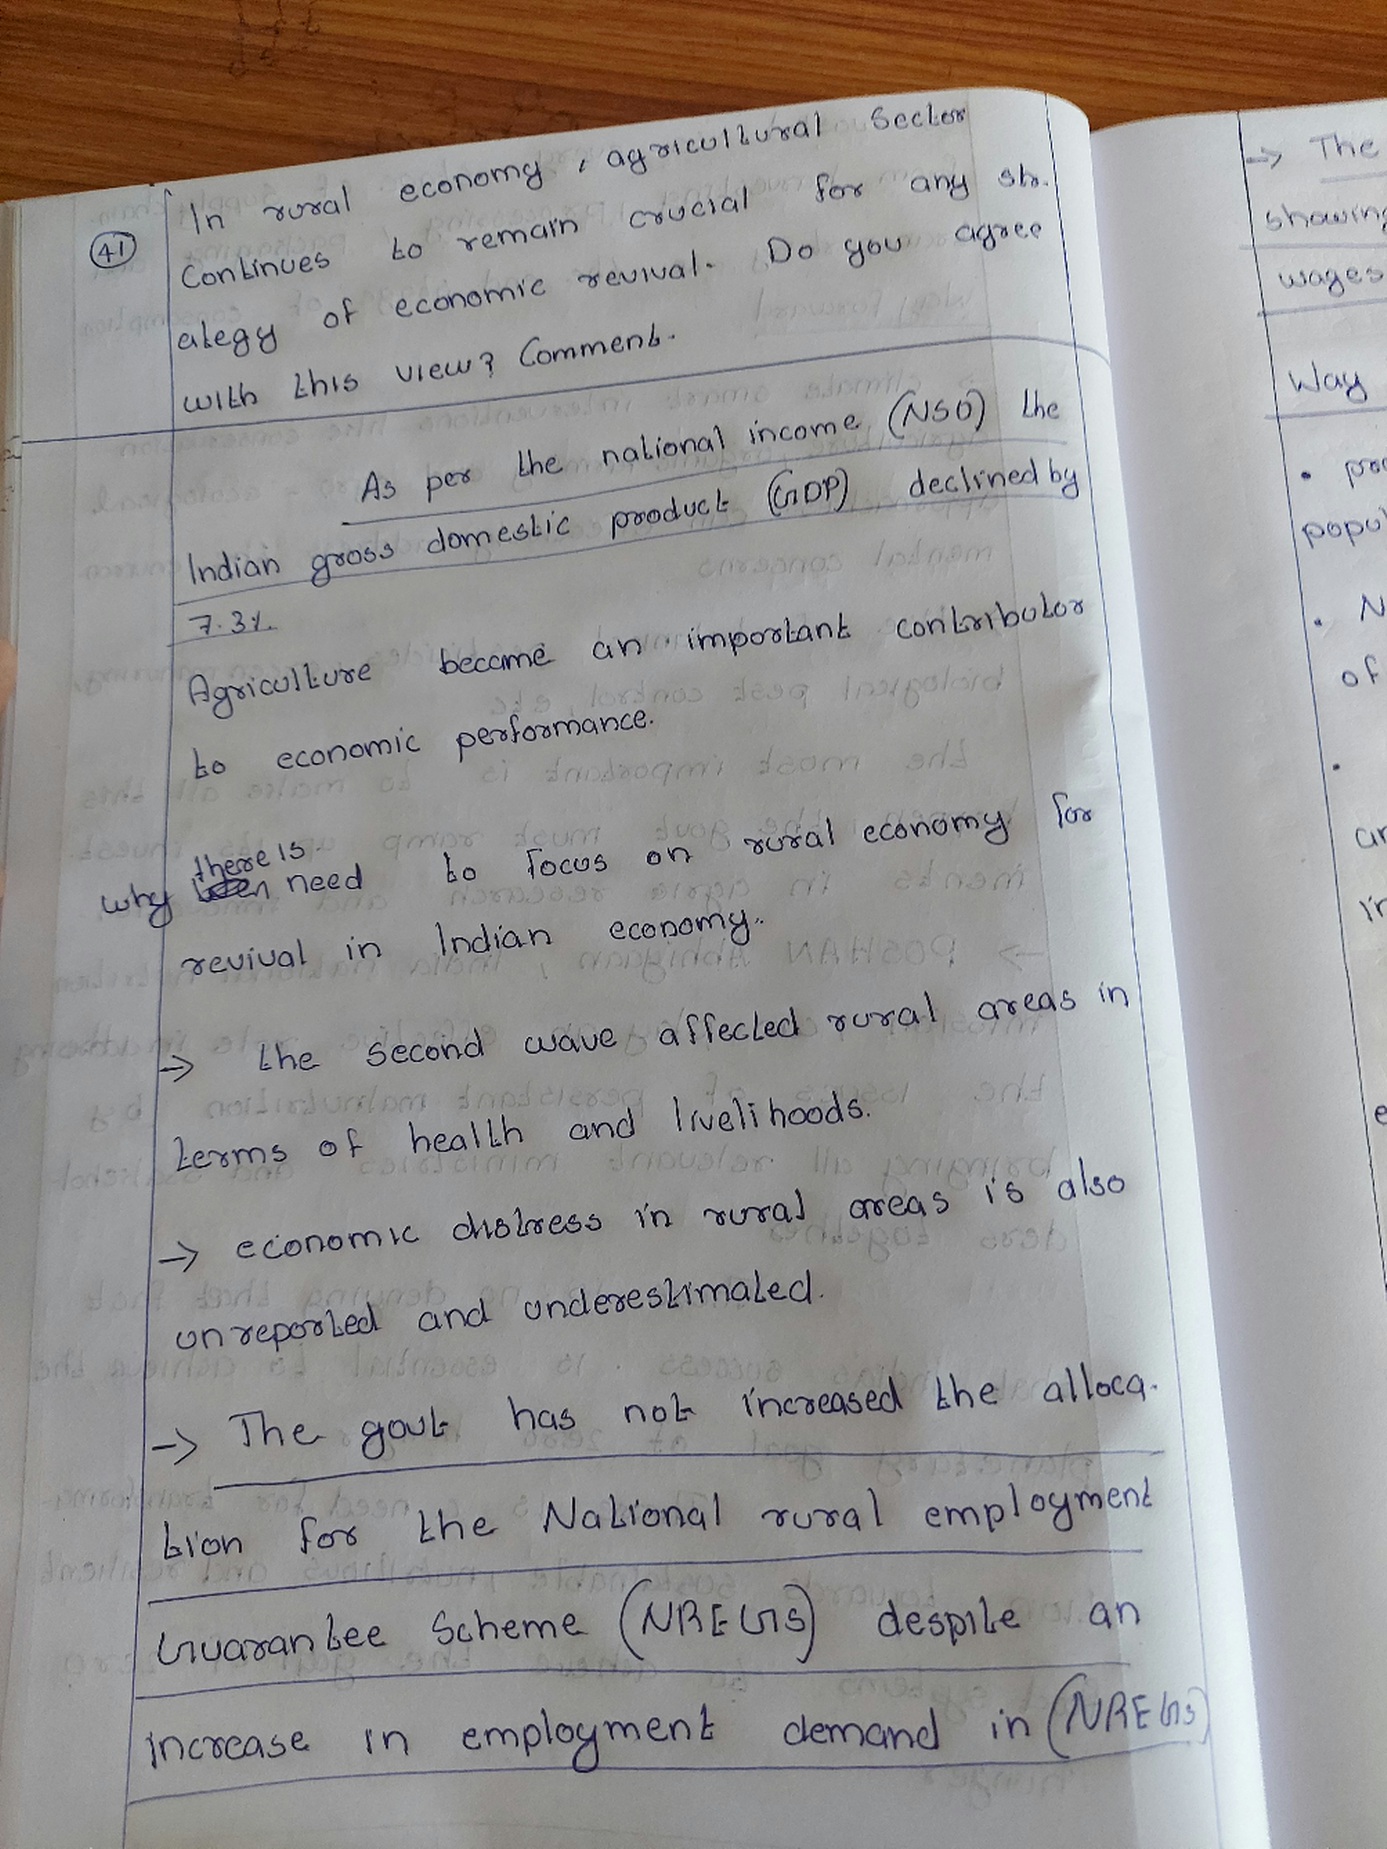 41
In rural economy, agricultural Sector
Continues to remain crucial for any str-
ategy of economic revival. Do you agree
with this view? Comment.
As per the national income (NSO) the
Indian gross domestic product (GDP) declined by
7.3%.
Agriculture became an important contributor
to economic performance.
why there is need to focus on rural economy for
revival in Indian economy.
→ the second wave affected rural areas in
terms of health and livelihoods.
→ economic distress in rural areas is also
unreported and underestimated.
→ The govt has not increased the alloca-
tion for the National rural employment
Guarantee Scheme (NREGS) despite an
increase in employment demand in (NREGS)
→ The
showing
wages
Way
• 
• N
of
•